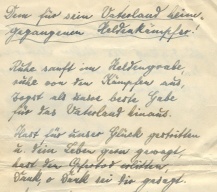 Dem für sein Vaterland heim-
gegangenen Heldenkämpfer.
Ruhe sanft im Heldengrabe
ruhe von den Kämpfen aus
Zogst als unsre beste Gabe
für das Vaterland hinaus.
Hast für unser Glück gestritten
u. dein Leben gern gewagt
hast den Opfertod erlitten
Dank, o Dank sei dir gesagt.